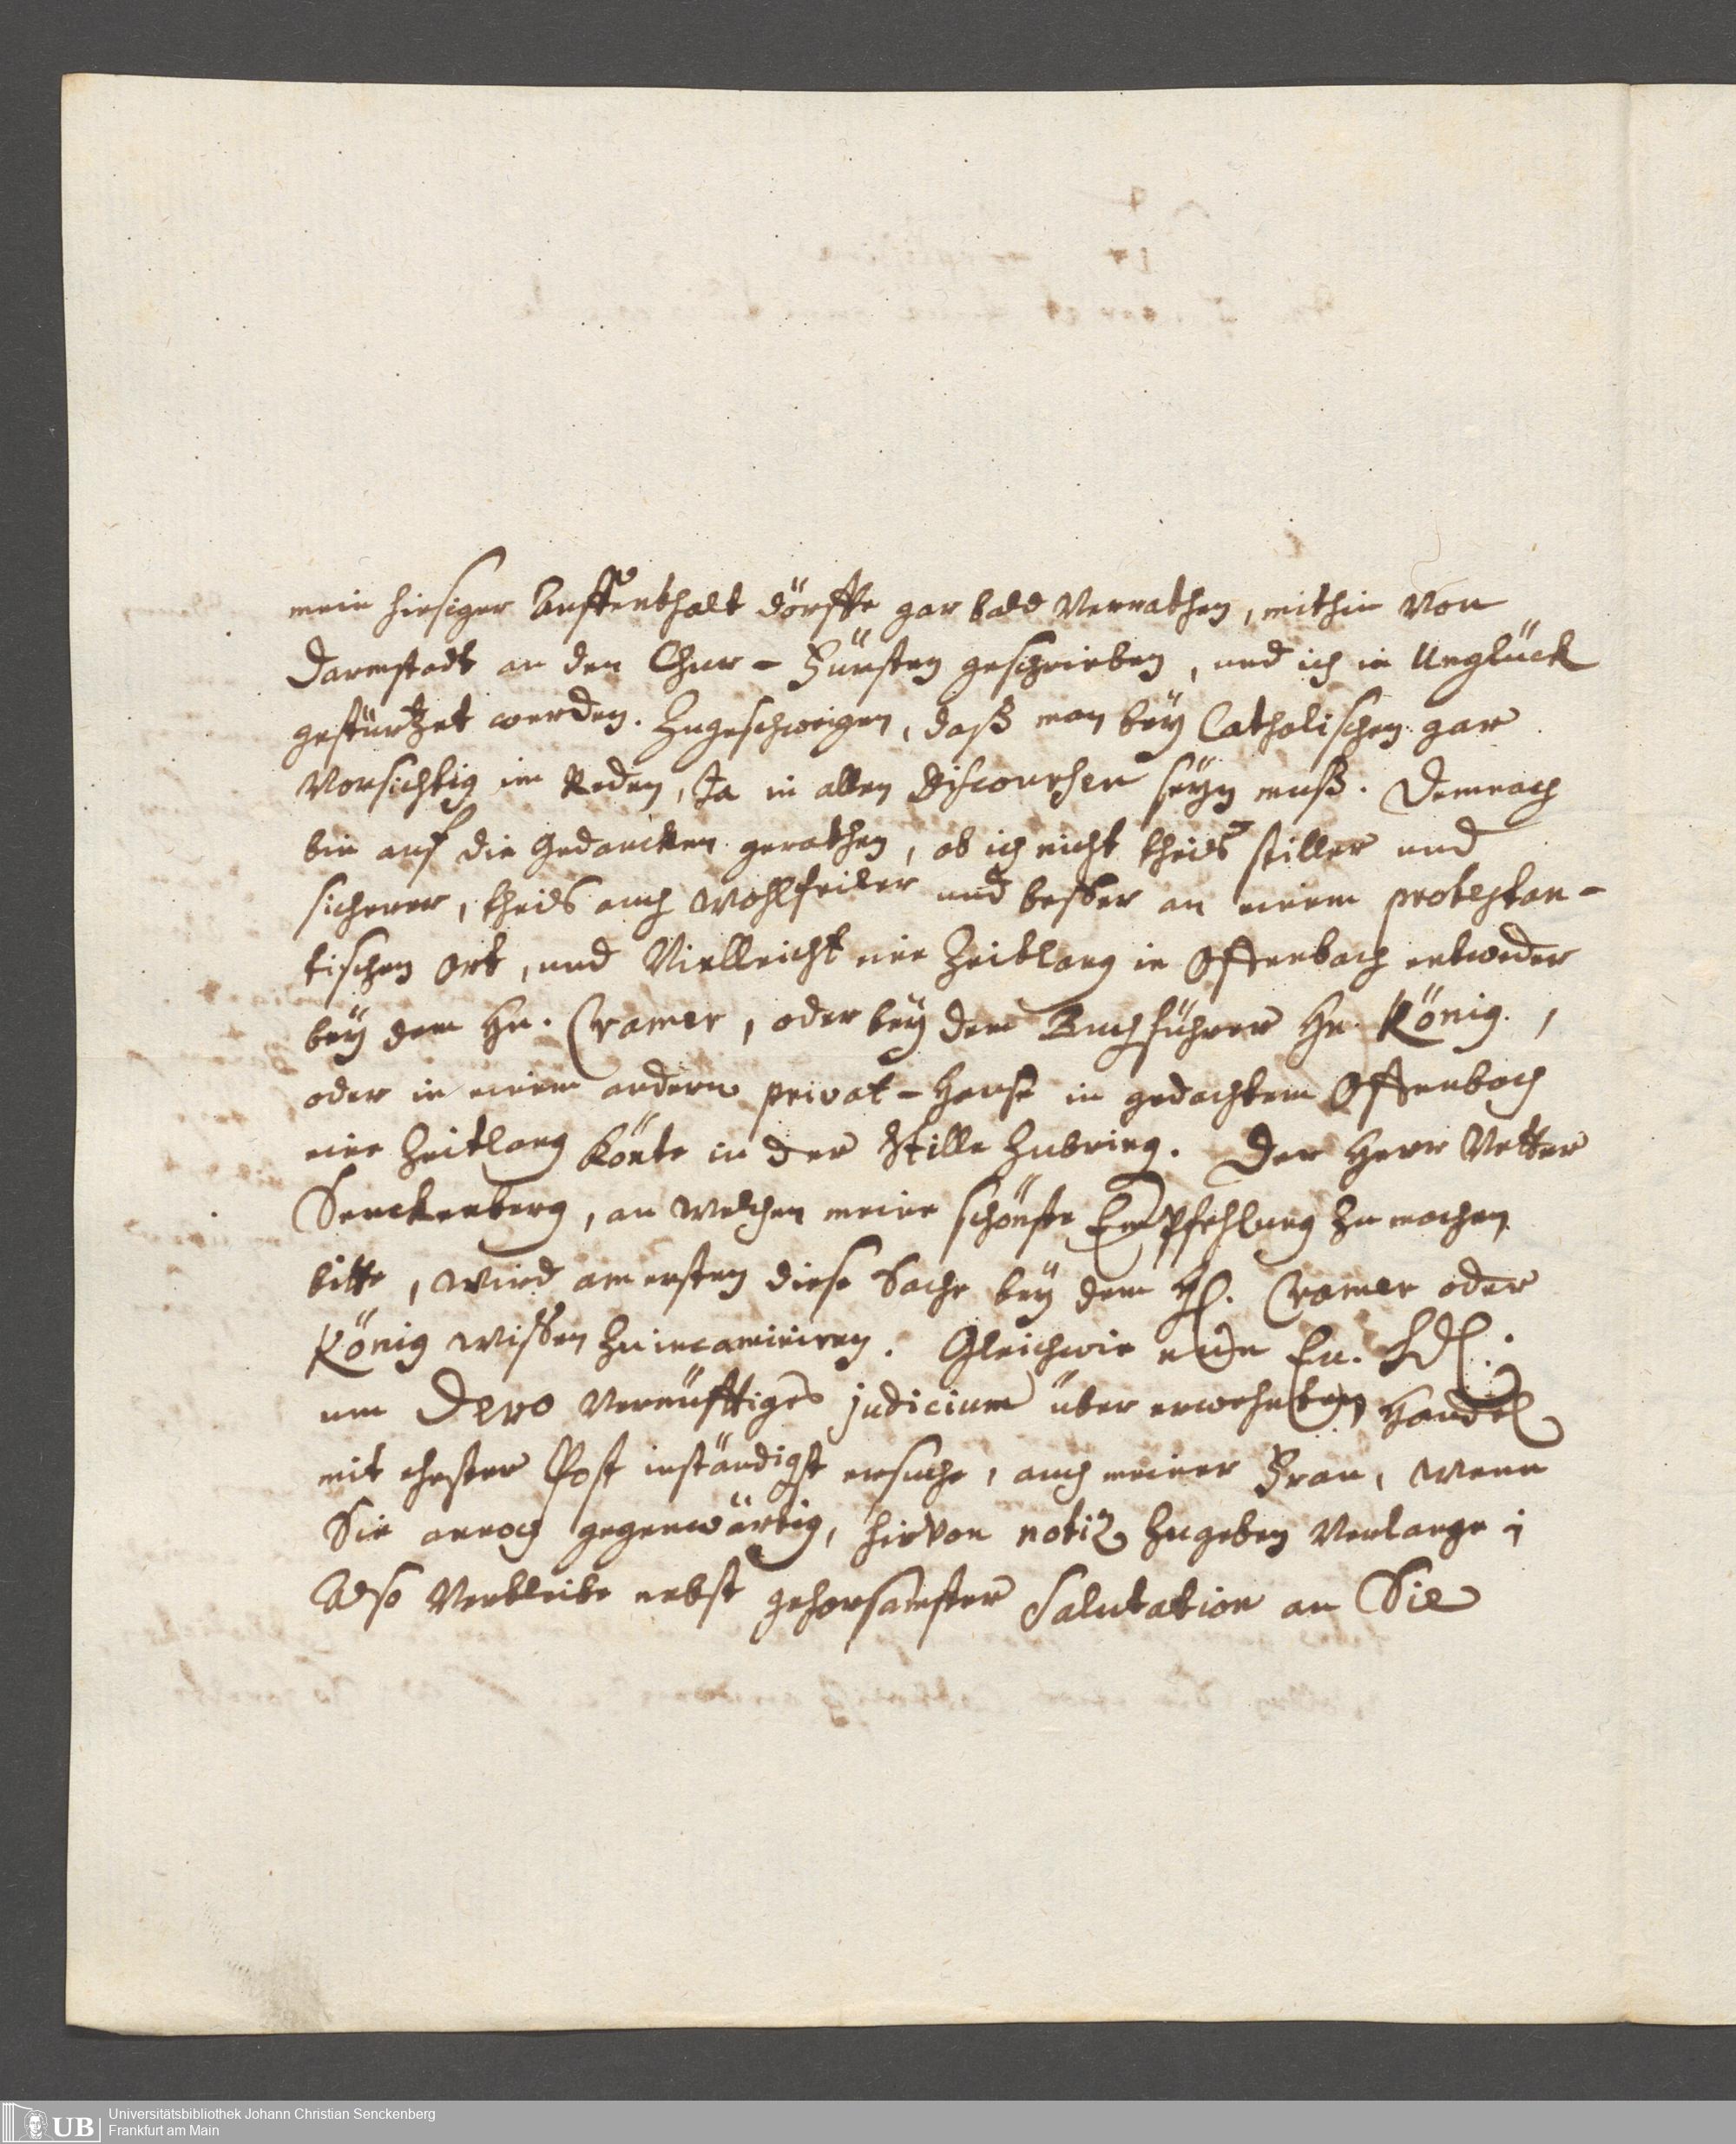 mein hiesiger Auffenthalt dörffte gar bald Verrathen, mithin Von
Darmstadt an den Chur-Fürsten geschrieben, und ich in Unglück
gestürtzet werden. Zugeschweigen, daß man beÿ Catholischen gar
Vorsichtig im Reden, Ja in allen Discourßen seÿn muß. Demnach
bin auf die Gedancken gerathen, ob ich nicht theils stiller und
sicherer, theils auch Wohlfeiler und besser an einem protestan-
tischen Ort, und Vielleicht eine Zeitlang in Offenbach entweder
beÿ dem Hn. Cramer, oder beÿ dem Buchführer Hn. König.,
oder in einem andern privat-Hause in gedachtem Offenbach
eine Zeitlang könte in der Stille Zubring. Der Herr Vetter
Senckenberg, an Welchen meine schönste Empfehlung Zu machen
bitte, Wird am ersten diese Sache beÿ dem H. Cramer oder
König Wissen Zu incaminiren. Gleichwie nun Eu.
um Dero Vernüfftiges judicium über erwehnten Handel
mit ehester Post inständigst ersuche, auch meiner Frau, Wenn
Sie annoch gegenwärtig, hievon notiz Zugeben Verlange;
Also Verbleibe nebst gehorsamster Salutation an Sie
Universitätsbibliothek Johann Christian Senckenberg
Frankfurt am Main
UB